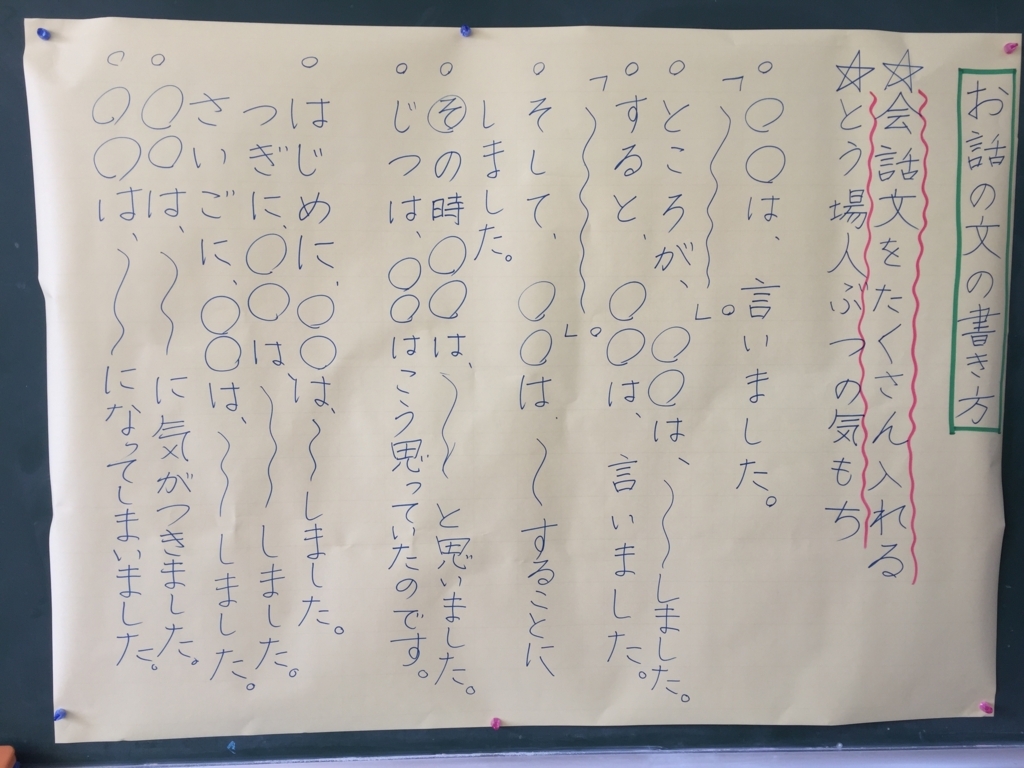 お話の文の書き方
☆会話文をたくさん入れる
☆とう場人ぶつの気もち
○ ○○は、言いました。
「〜〜」。
○ ところが、○○は、〜しました。
○ すると、○○は、言いました。
「〜〜」。
○ そして、○○は、〜することに
しました。
○ その時○○は、〜と思いました。
○ じつは、○○はこう思っていたのです。
○ はじめに、○○は、〜しました。
つぎに、○○は、〜しました。
さいごに、○○は、〜しました。
○ ○○は、〜に気がつきました。
○ ○○は、〜になってしまいました。